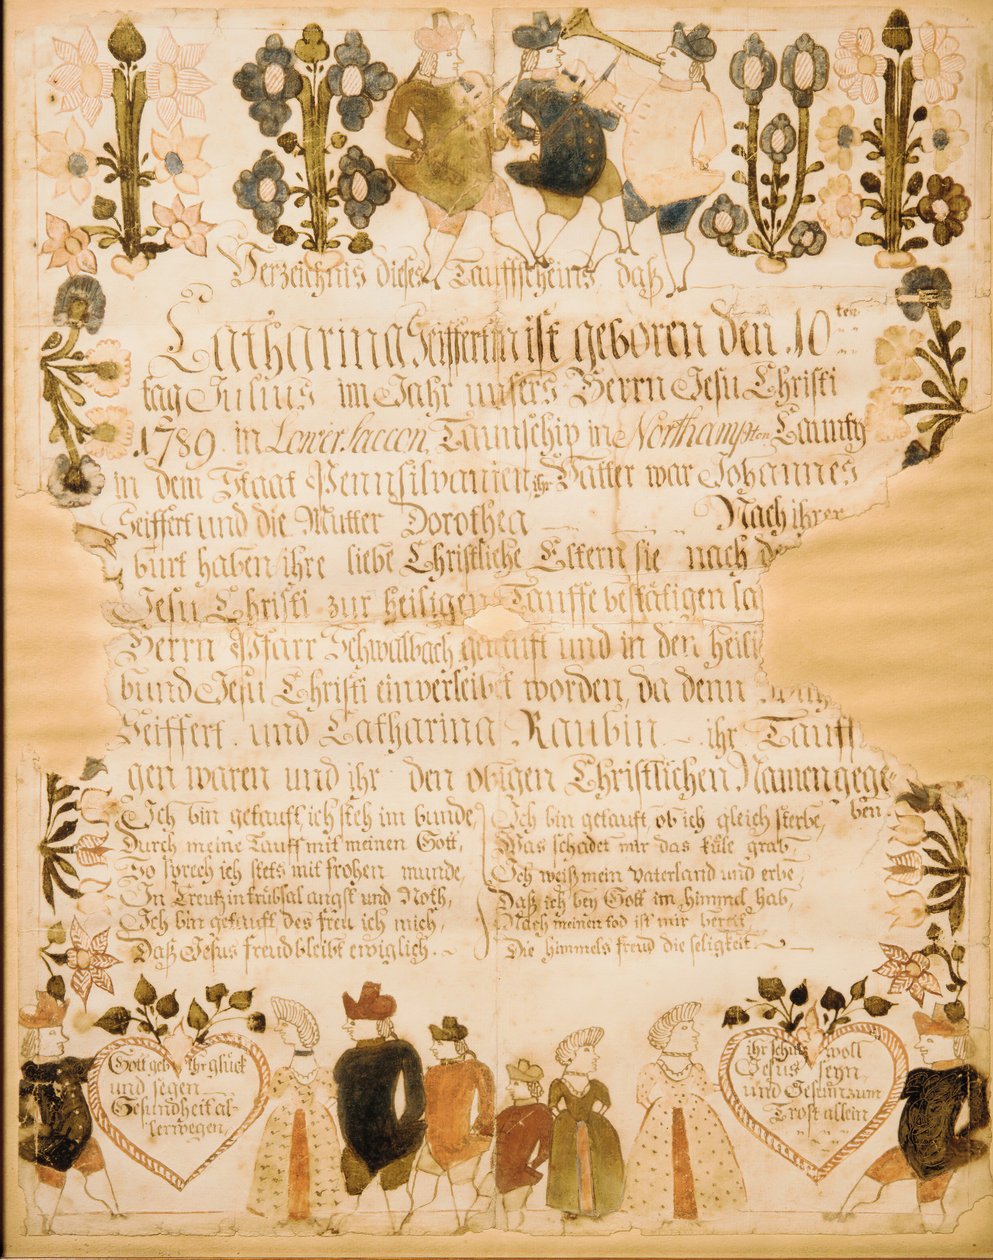 Verzeichnis dieses Tauffscheins, daß
Catharina Seiffertin ist geboren den 10ten
tag Julius im Jahr unsers Herrn Jesu Christi
1789. in Lower Saccon, Taunschip in Northampton Caunty
in dem Staat Pennsilvanien, ihr Vatter war Johannes
Seiffert und die Mutter Dorothea Nach ihrer
burt haben ihre liebe Christliche Eltern sie nach
Jesu Christi zur heiligen Tauffe bestätigen
Herrn Pfarr Schwalbach getauft und in den
bund Jesu Christi einverleibet worden, da denn
Seiffert. und Catharina Raubin ihr
gen waren und ihr den obigen Christlichen Namen gege-
ben.
Ich bin getauft, ich steh im bunde,
Durch meine Tauff mit meinen Gott,
So sprech ich stets mit frohen munde,
In Creutz in trübsal angst und Noth,
Ich bin getauft, des freu ich mich,
Daß Jesus freud bleibt ewiglich.
Ich bin getauft, ob ich gleich sterbe,
Was schadet mir das küle grab,
Ich weiß mein Vaterland und erbe,
Daß ich bey Gott im himmel hab,
Nach meinen tod ist mir bereit,
Die himmels freud die seligkeit.
Gott geb ihr glück
und segen
Gesundheit al-
lerwegen,
ihr schutz woll
Jesus seyn
und Gesum zum
Trost allein